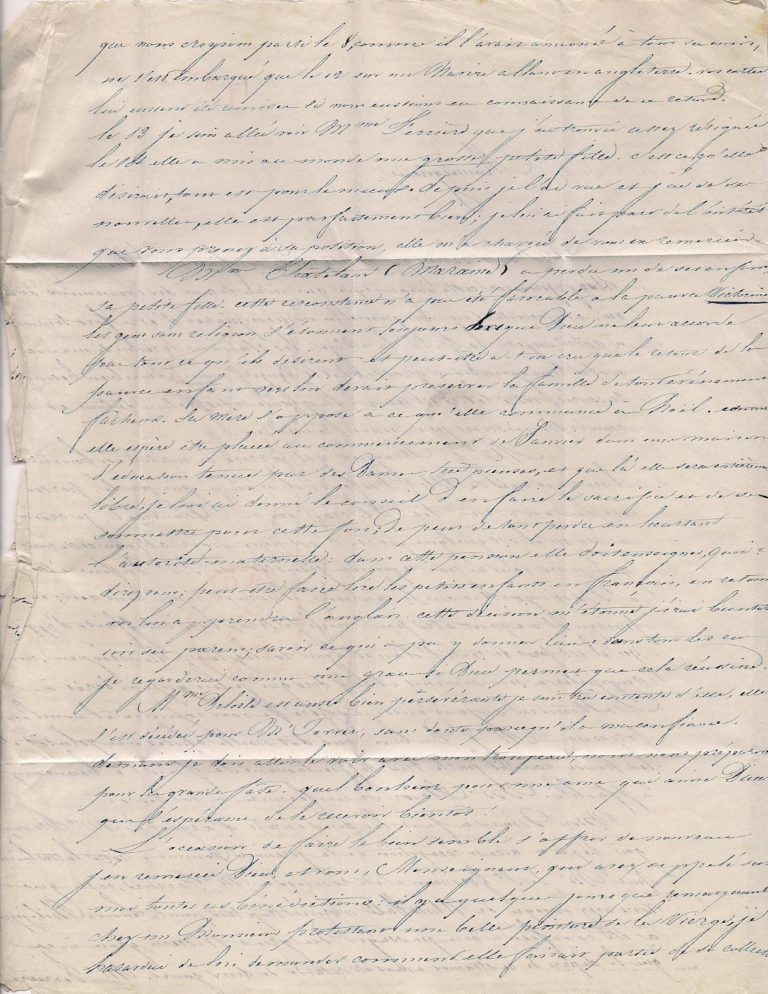 que nous croyions parti le 8, comme il l'avait annoncé à tous ses amis,
ne s'est embarqué que le 12 sur un Navire allant en angleterre, vos cartes
lui eussent été remises si nous eussions eu connaissance de ce retard.
le 13 je suis allée voir Mme Ferrière que j'ai trouvée assez résignée
le elle a mis au monde une grosse petite fille. c'est ce qu'elle
désirait, tout est pour le mieux. depuis je l'ai vue et j'ai de ses
nouvelles, elle est parfaitement bien; je lui ai fait part de l'intérêt
que vous prenez à sa position, elle m'a chargée de vous en remercier.
Mme Chatelain a perdu un de ses enfans
sa petite fille. cette circonstance n'a pas été favorable à la pauvre Victorine
les gens sans religion s'étonnent toujours que Dieu ne leur accorde
pas tout ce qu'ils désirent et peut-être a t'on cru que le retour de la
pauvre enfant vers lui devait préserver la famille de tout événement
fâcheux. sa mère s'oppose à ce qu'elle communie à Noël.
elle espère être placée au commencement de Janvier dans une maison
d'éducation tenue par des Dames très pieuses, et que là elle sera entièrement
libre, je lui ai donné le conseil d'en faire le sacrifice et de se
soumettre pour cette fois, de peur de tout perdre en heurtant
l'autorité maternelle: dans cette pension elle doit enseigner, quoi?
disons, peut-être faire lire les petits enfants en français, en retour
on lui apprendra l'anglais. cette décision m'étonne, j'irai bientôt
voir ses parens, savoir ce qui a pu y donner lieu: dans tous les cas
je regarderai comme une grace si Dieu permet que cela réussisse.
Mme est aussi bien persévérante, je suis très contente d'elle, elle
s'est décidée pour Mr Torres, sans doute parcequ'il a ma confiance.
demain je dois aller le voir avec mon troupeau, nous nous préparons
pour la grande fête. quel bonheur pour une ame qui aime Dieu
que l'espérance de le recevoir bientôt!
L'occasion de faire le bien semble s'offrir de nouveau
j'en remercie Dieu, et vous, Monseigneur, qui avez appelé sur
moi toutes ces bénédictions: il y a quelques jours que remarquant
chez un Monsieur protestant une belle peinture de la Vierge, je
hasardai de lui demander comment elle faisait partie de sa collection